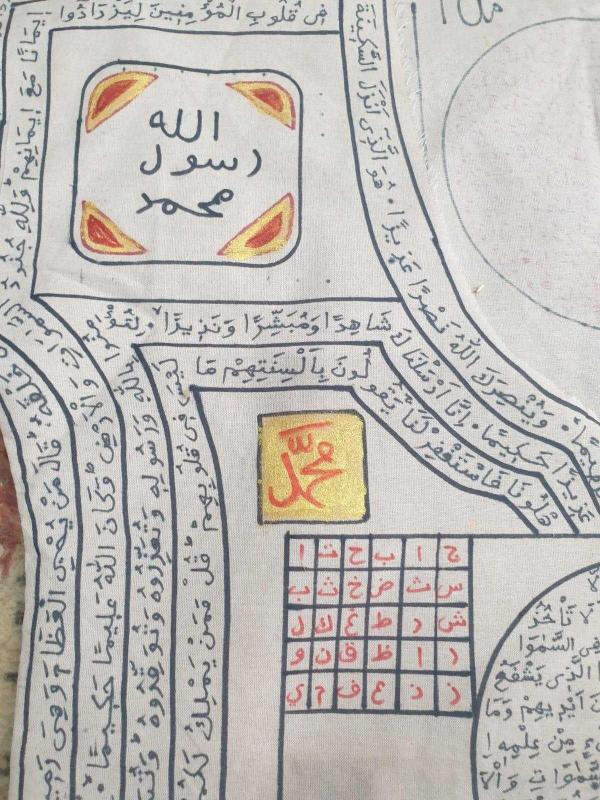 وَيَنْصُرَكَ اللّٰهُ نَصْرًا عَزِيزًا هُوَ الَّذِى اَنْزَلَ السَّكِينَةَ
فِى قُلُوبِ الْمُؤْمِنِينَ لِيَزْدَادُوا
اِيمَانًا مَعَ اِيمَانِهِمْ وَلِلّٰهِ جُنُودُ السَّمٰوَاتِ وَالْاَرْضِ وَكَانَ اللّٰهُ عَلِيمًا حَكِيمًا
الله
رسول
محمد
عَزِيزًا حَكِيمًا اِنَّا اَرْسَلْنَاكَ
شَاهِدًا وَمُبَشِّرًا وَنَذِيرًا لِتُؤْمِنُوا
بِاللّٰهِ وَرَسُولِهِ وَتُعَزِّرُوهُ وَتُوَقِّرُوهُ
هْلُونَا فَاسْتَغْفِرْ لَنَا يَقُو
لُونَ بِاَلْسِنَتِهِمْ مَا
لَيْسَ فِى قُلُوبِهِمْ قُلْ فَمَنْ يَمْلِكُ لَكُمْ
خَلْقَهُ قَالَ مَنْ يُحْيِى الْعِظَامَ وَهِىَ رَمِي
محمد
ج ا ب ح ت ا
س ث ض خ ث ب
ش ر ط غ ك ل
د ا ظ ق ن و
ذ ز ع ف م ي
لَا تَأْخُذُ
فِى السَّمٰوَا
ا الَّذِى يَشْفَعُ
نَ اَيْدِيهِمْ وَمَا
ءٍ مِنْ عِلْمِهِ اِ
مٰوَاتِ وَالْاَ